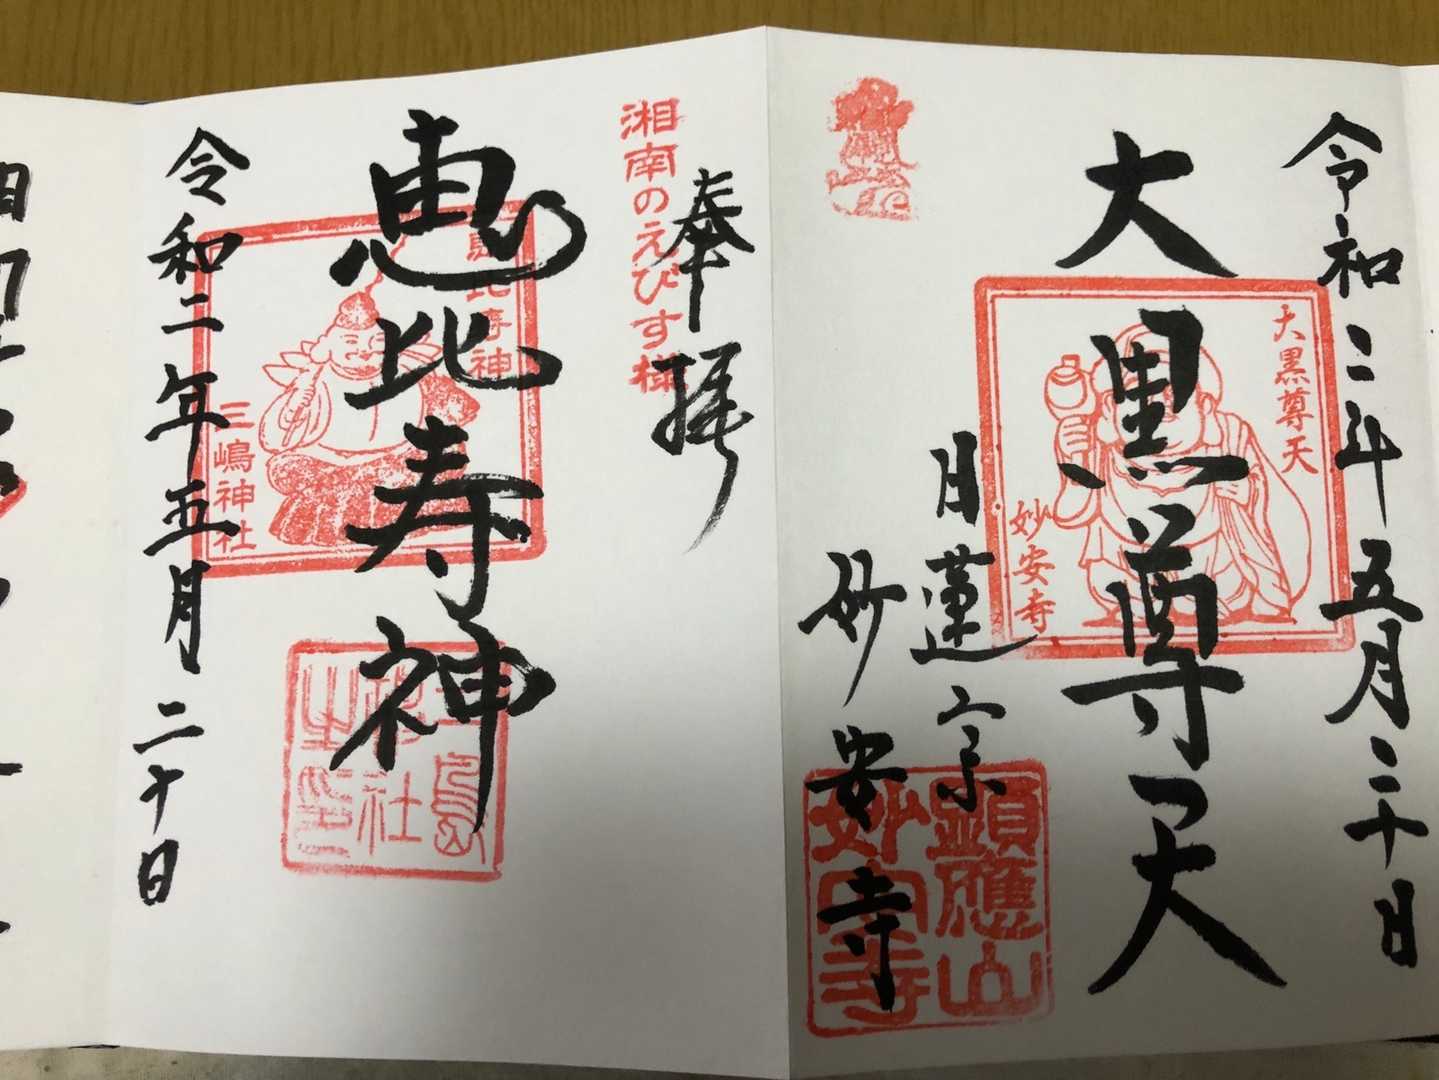 令和二年五月二十日
大黒尊天
大黒尊天
妙安寺
日蓮宗
妙安寺
顕應山
妙安寺
奉拝
湘南のえびす様
恵比寿神
比寿神
三嶋神社
令和二年五月二十日